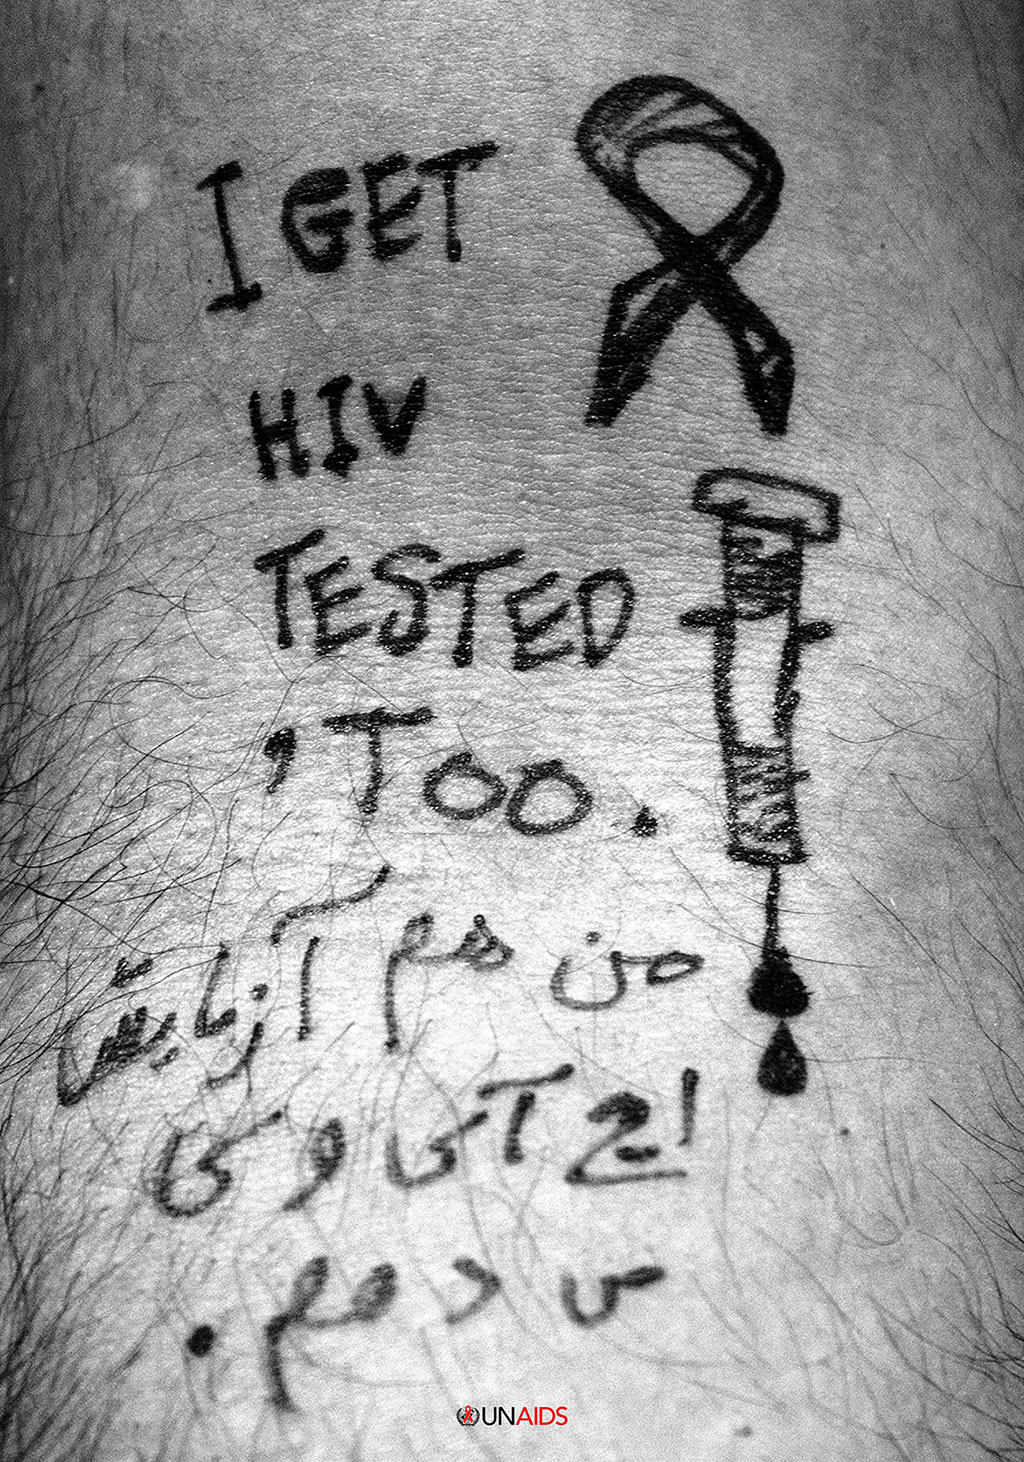 I GET
HIV
TESTED
'TOO.
من هم آزمایش
اچ آی وی
می دهم.
UNAIDS